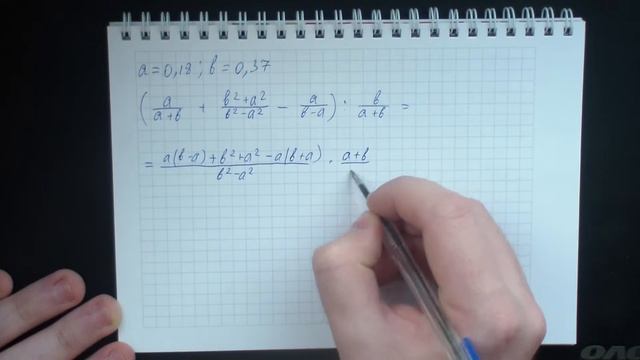 a = 0,18 ; b = 0,37
(a/(a+b) + (b²+a²)/(b²-a²) - a/(b-a)) : b/(a+b) =
= (a(b-a)+b²+a²-a(b+a))/(b²-a²) · (a+b)/